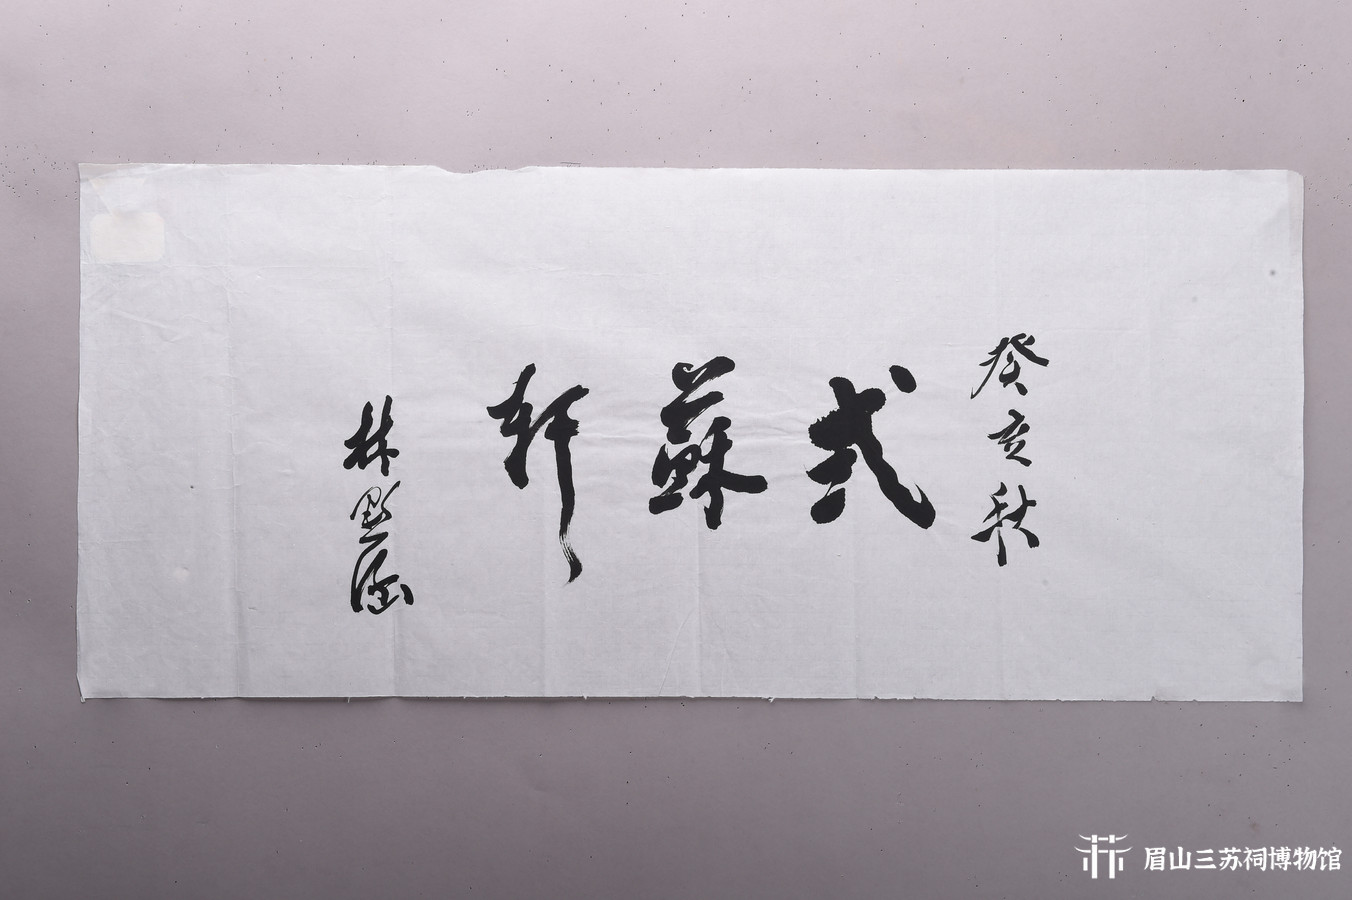 癸亥秋
式蘇軒
林默涵
眉山三苏祠博物馆